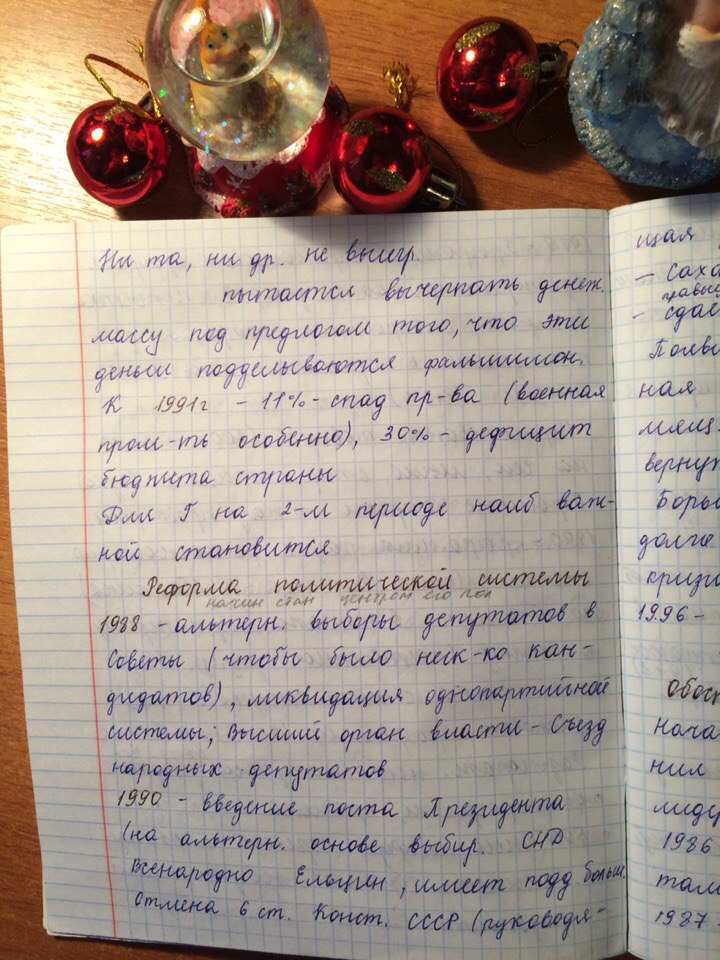 Ни та, ни др. не выигр.
пытается вычерпать денеж.
массу под предлогом того, что эти
деньги подделываются фальшимон.
К 1991г - 11% - спад пр-ва (военная
пром-ть особенно), 30% - дефицит
бюджета страны
Для Г на 2-м периоде наиб важ-
ной становится
Реформа политической системы
начин стан центром его пол
1988 - альтерн. выборы депутатов в
Советы (чтобы было неск-ко кан-
дидатов), ликвидация однопартийной
системы; Высший орган власти - Съезд
народных депутатов
1990 - введение поста Президента
(на альтерн. основе выбир. СНД
Всенародно Ельцин, имеет подд. больш.
Отмена 6 ст. Конст. СССР (руководя-
щая
- Саха
правы
- сдае
Появи
ная
мящ
вернут
Борьб
долге
кризи
1996 -
Обост
нача
нил
лидер
1986
там
1987 -